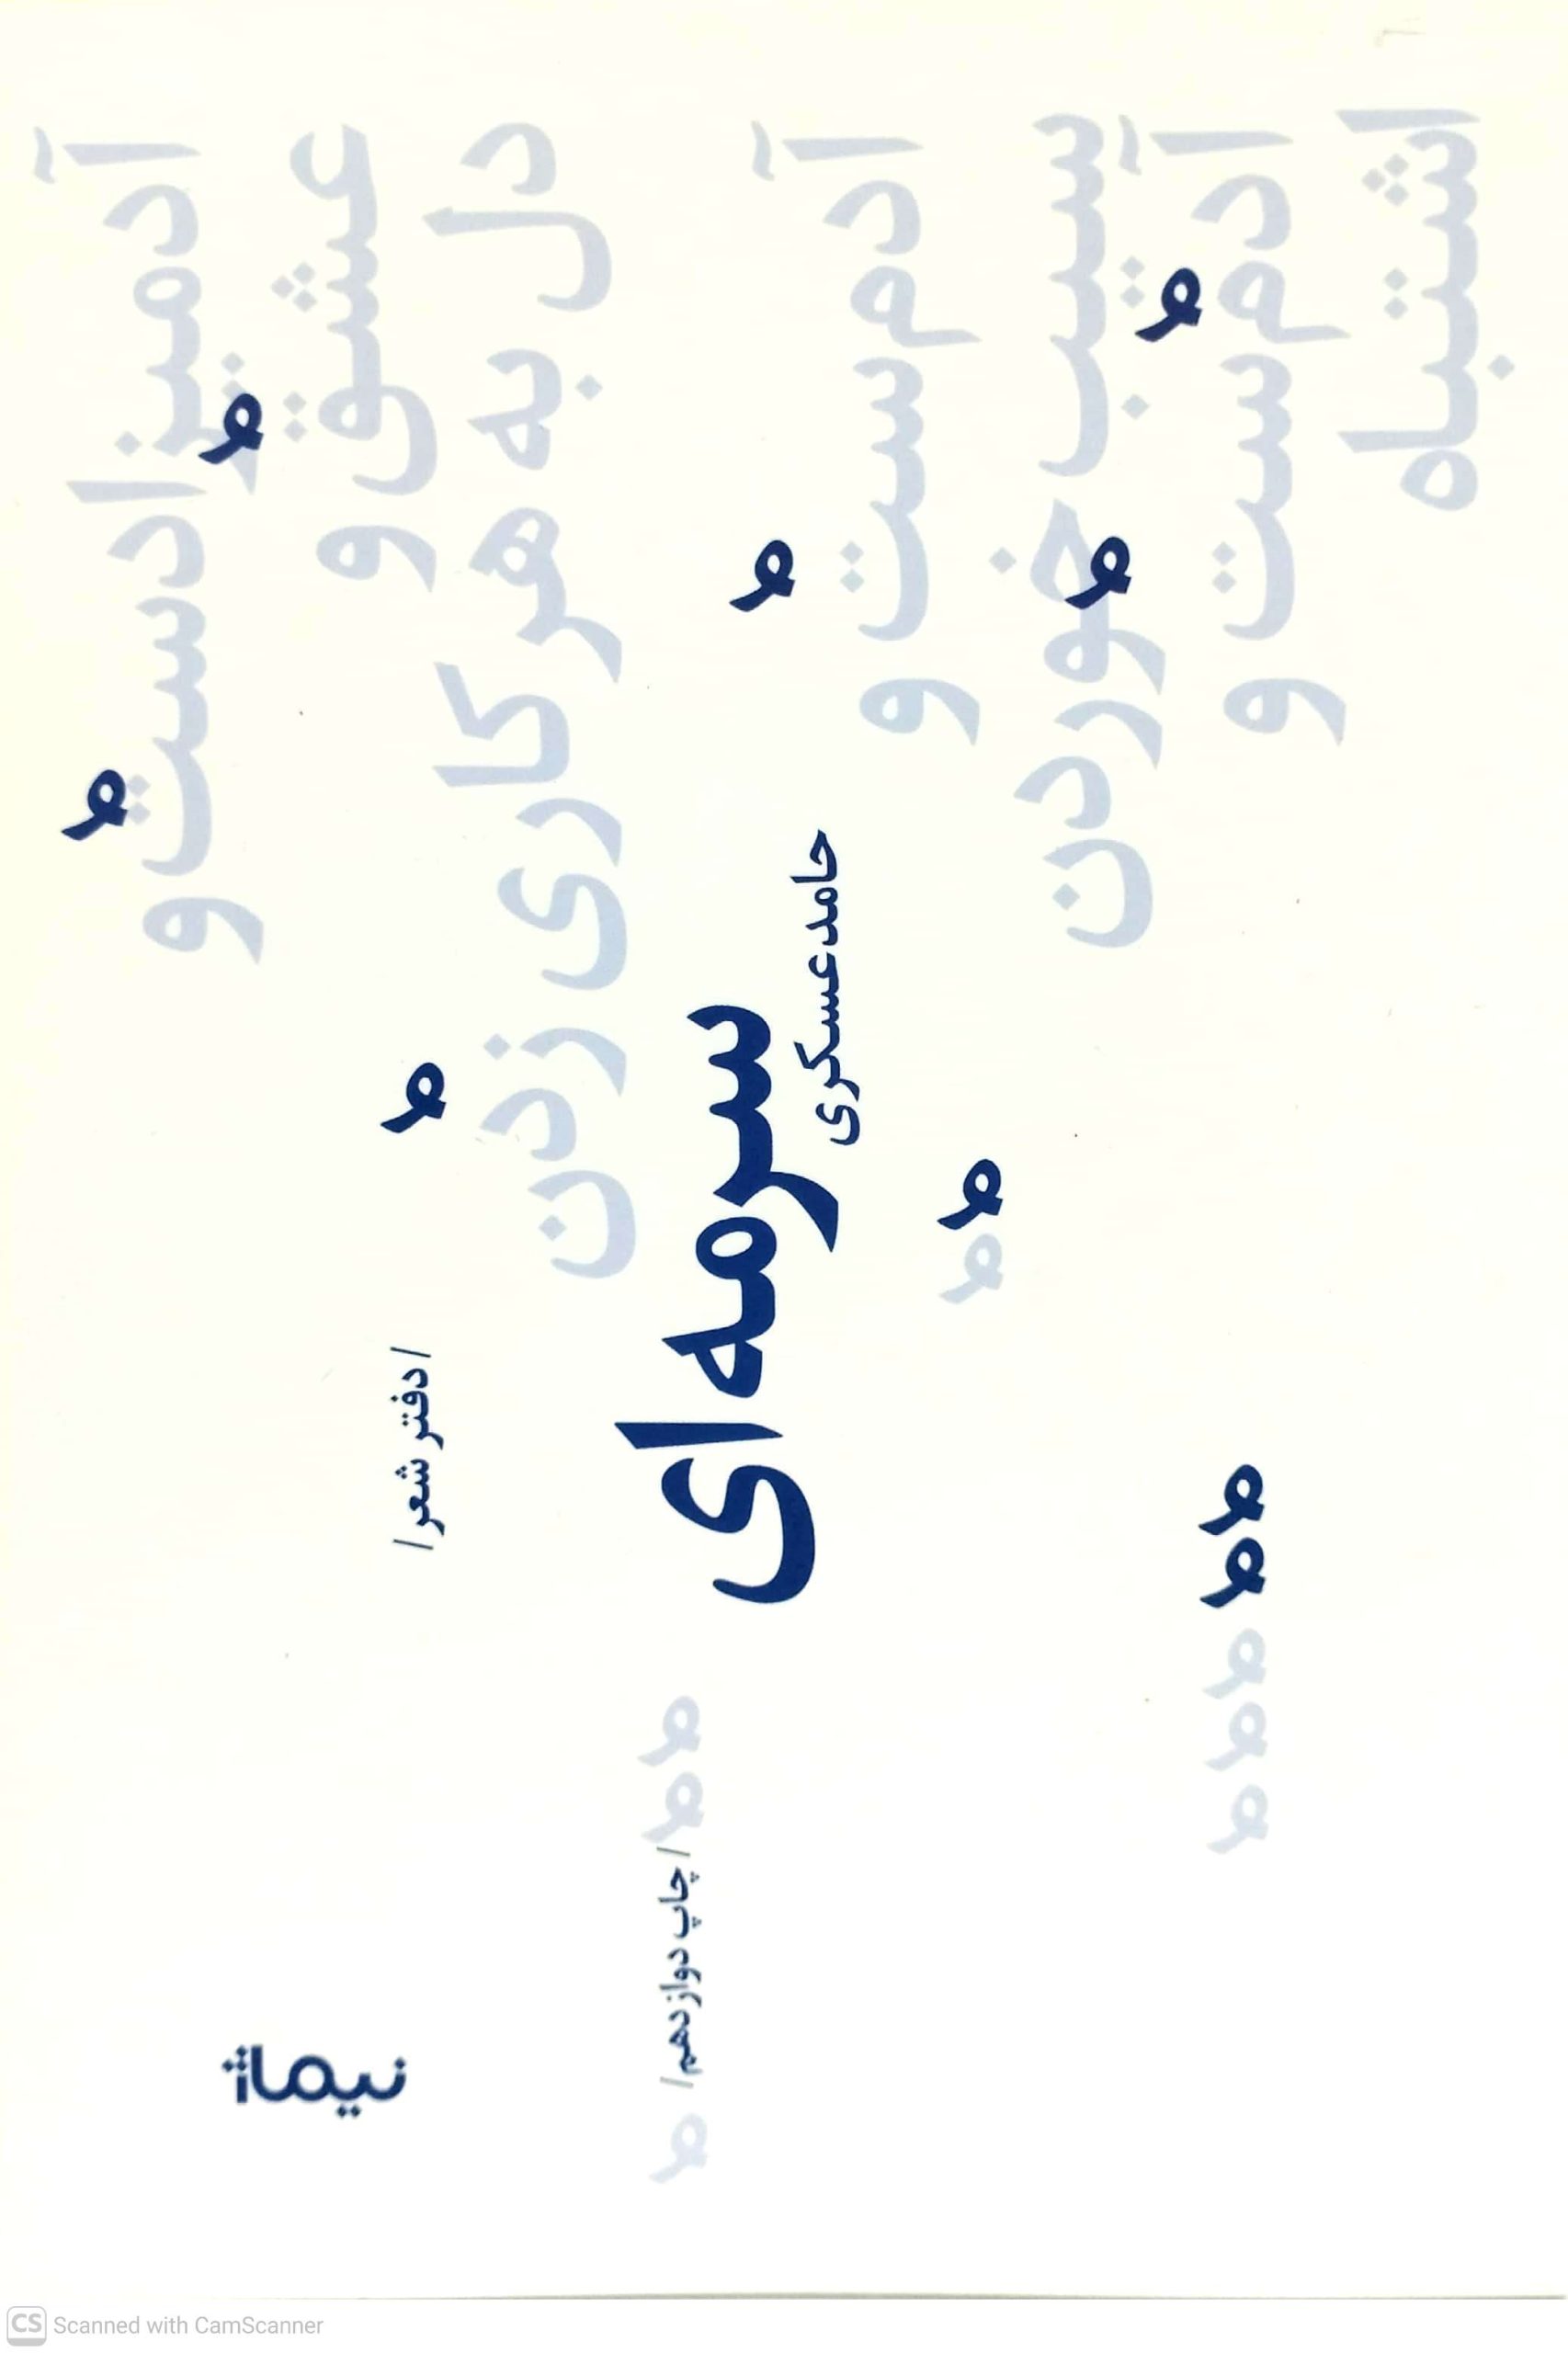 آدمیزادست و
عشق و
دل به هر کاری زدن
آدم ست و
سیب خوردن
آدم ست و
اشتباه
/ دفتر شعر /
سرمه ای
حامد عسکری
/ چاپ دوازدهم /
نیماژ
CS Scanned with CamScanner